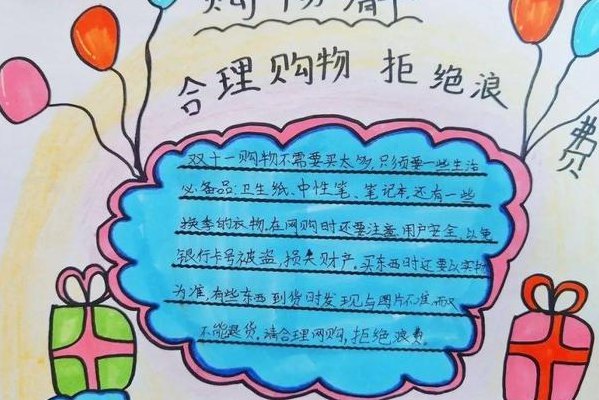 购物
合理购物 拒绝浪
费
双十一购物不需要买太多,只须要一些生活
必备品:卫生纸、中性笔、笔记本,还有一些
换季的衣物,在网购时还要注意用户安全,以免
银行卡号被盗,损失财产,买东西时还要以实物
为准,有些东西到货时发现与图片不准,而又
不能退货,请合理网购,拒绝浪费。